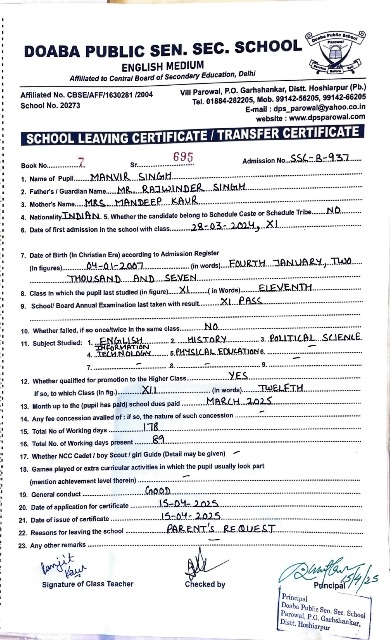 DOABA PUBLIC SEN. SEC. SCHOOL
ENGLISH MEDIUM
Affiliated to Central Board of Secondary Education, Delhi
Affiliated No. CBSE/AFF/1630281 /2004
School No. 20273
Vill Parowal, P.O. Garhshankar, Distt. Hoshiarpur (Pb.)
Tel. 01884-282205, Mob. 99142-56205, 99142-66205
E-mail : dps_parowal@yahoo.co.in
website : www.dpsparowal.com
SCHOOL LEAVING CERTIFICATE / TRANSFER CERTIFICATE
Book No. 7 Sr. 695 Admission No. SSC-B-937
1. Name of Pupil MANVIR SINGH
2. Father's / Guardian Name MR. RAJWINDER SINGH
3. Mother's Name MRS. MANDEEP KAUR
4. Nationality INDIAN 5. Whether the candidate belong to Schedule Caste or Schedule Tribe NO
6. Date of first admission in the school with class 28-03-2024, XI
7. Date of Birth (In Christian Era) according to Admission Register
(In figures) 04-01-2007 (in words) FOURTH JANUARY, TWO
THOUSAND AND SEVEN
8. Class in which the pupil last studied (in figure) XI (in Words) ELEVENTH
9. School/ Board Annual Examination last taken with result XI PASS
10. Whether failed, if so once/twice in the same class NO
11. Subject Studied: 1. ENGLISH 2. HISTORY 3. POLITICAL SCIENCE
4. INFORMATION TECHNOLOGY 5. PHYSICAL EDUCATION 6. –
7. – 8. – 9. –
12. Whether qualified for promotion to the Higher Class YES
If so, to which Class (in fig.) XII (in Words) TWELFTH
13. Month up to the (pupil has paid) school dues paid MARCH 2025
14. Any fee concession availed of : if so, the nature of such concession –
15. Total No of Working days 178
16. Total No. of Working days present 89
17. Whether NCC Cadet / boy Scout / girl Guide (Detail may be given) –
18. Games played or extra curricular activities in which the pupil usually look part
(mention achievement level therein) –
19. General conduct GOOD
20. Date of application for certificate 15-04-2025
21. Date of issue of certificate 15-04-2025
22. Reasons for leaving the school PARENT'S REQUEST
23. Any other remarks –
Ranjit Kaur
15/4/25
Signature of Class Teacher Checked by Principal
Principal
Doaba Public Sen. Sec. School
Parowal, P.O. Garhshankar,
Distt. Hoshiarpur